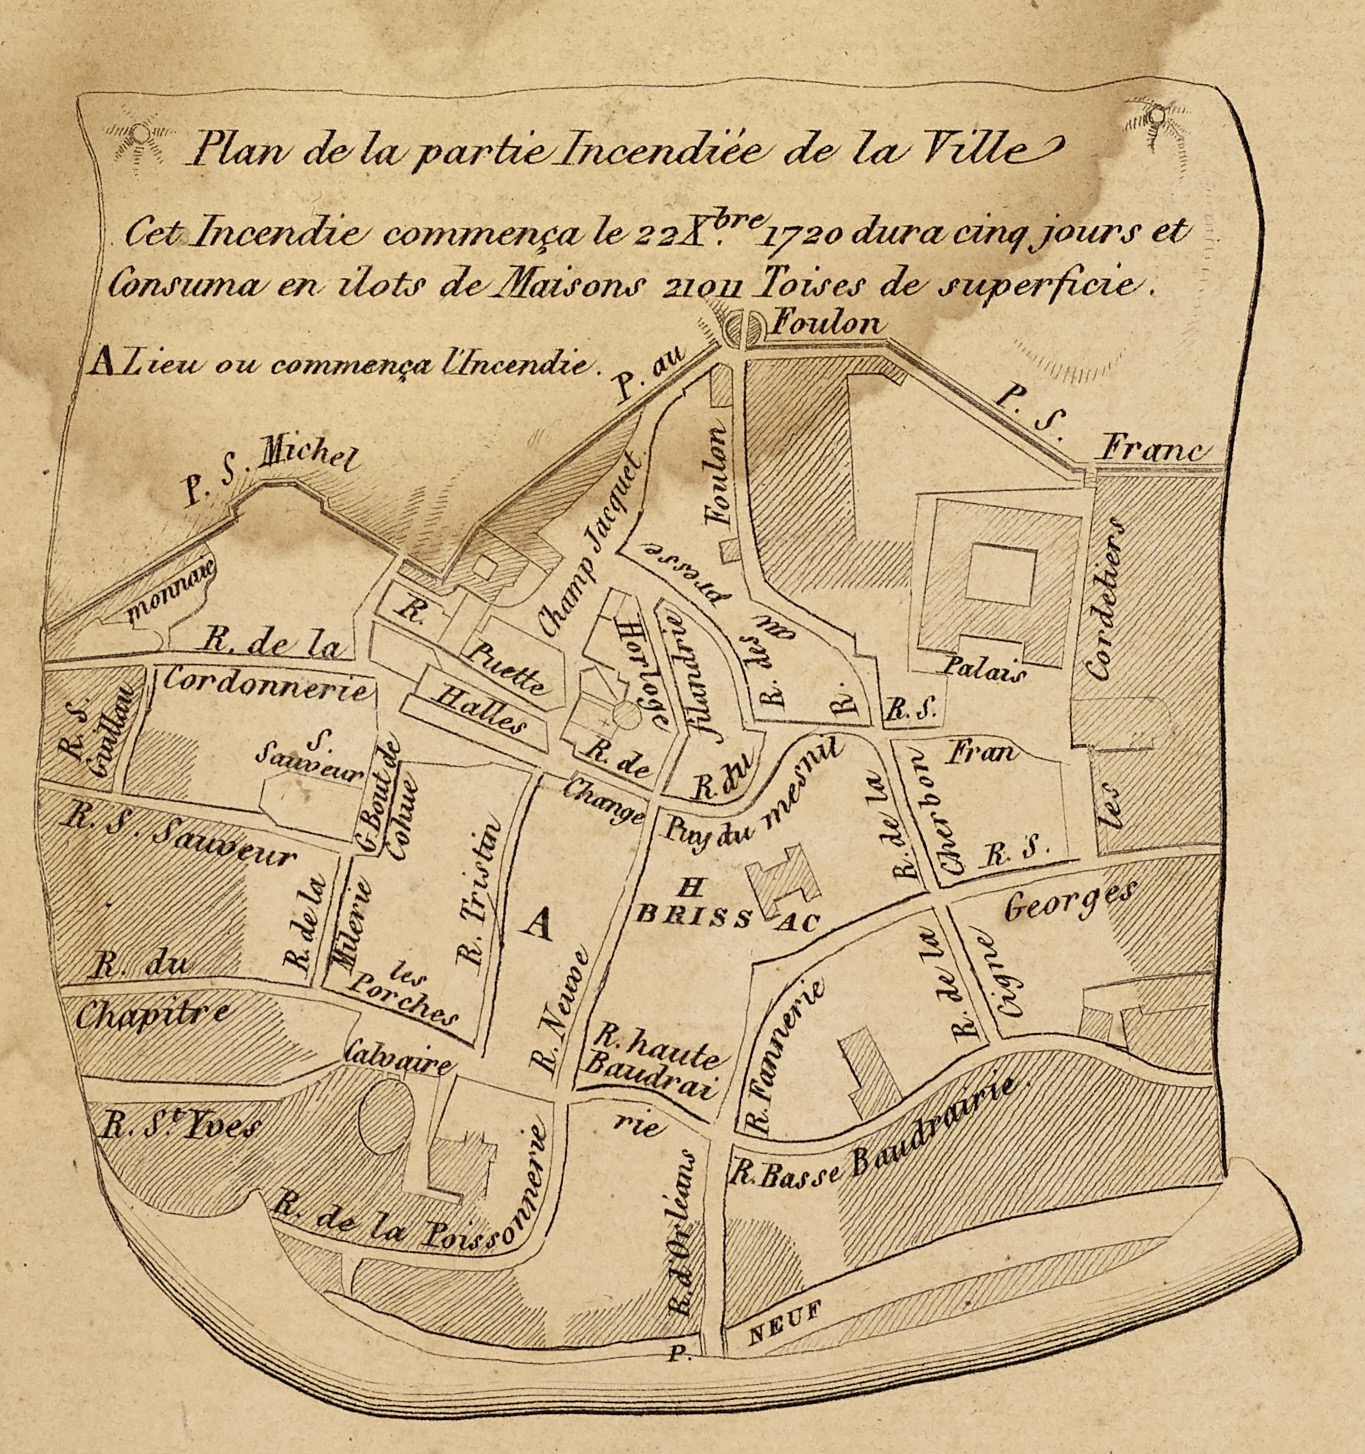 Plan de la partie Incendiée de la Ville
Cet Incendie commença le 22 X.bre 1720 dura cinq jours et
Consuma en ilots de Maisons 21011 Toises de superficie.
A Lieu ou commença l'Incendie.
P. au Foulon
P. S. Michel
P. S. Franc
monnaie
R. de la
Cordonnerie
R. S.
Guillau
S.
Sauveur
R. S. Sauveur
G Bout de
Cohue
R. Puette
Halles
Champ Jacquet
Foulon
presse
au
R. des
R.
Horloge
filandrie
R. de
Change
R. du
Puy du mesnil
R. S.
Fran
Palais
Cordeliers
les
R. de la
Cherbon
R. S.
Georges
H
BRISSAC
A
R. Tristin
R. de la
Milerie
les
Porches
R. Neuve
R. du
Chapitre
Calvaire
R. St. Yves
R. haute
Baudrai
rie
R. Fannerie
R. de la
Cigne
R. Basse Baudrairie.
R. de la Poissonnerie
R. d'Orléans
P. NEUF